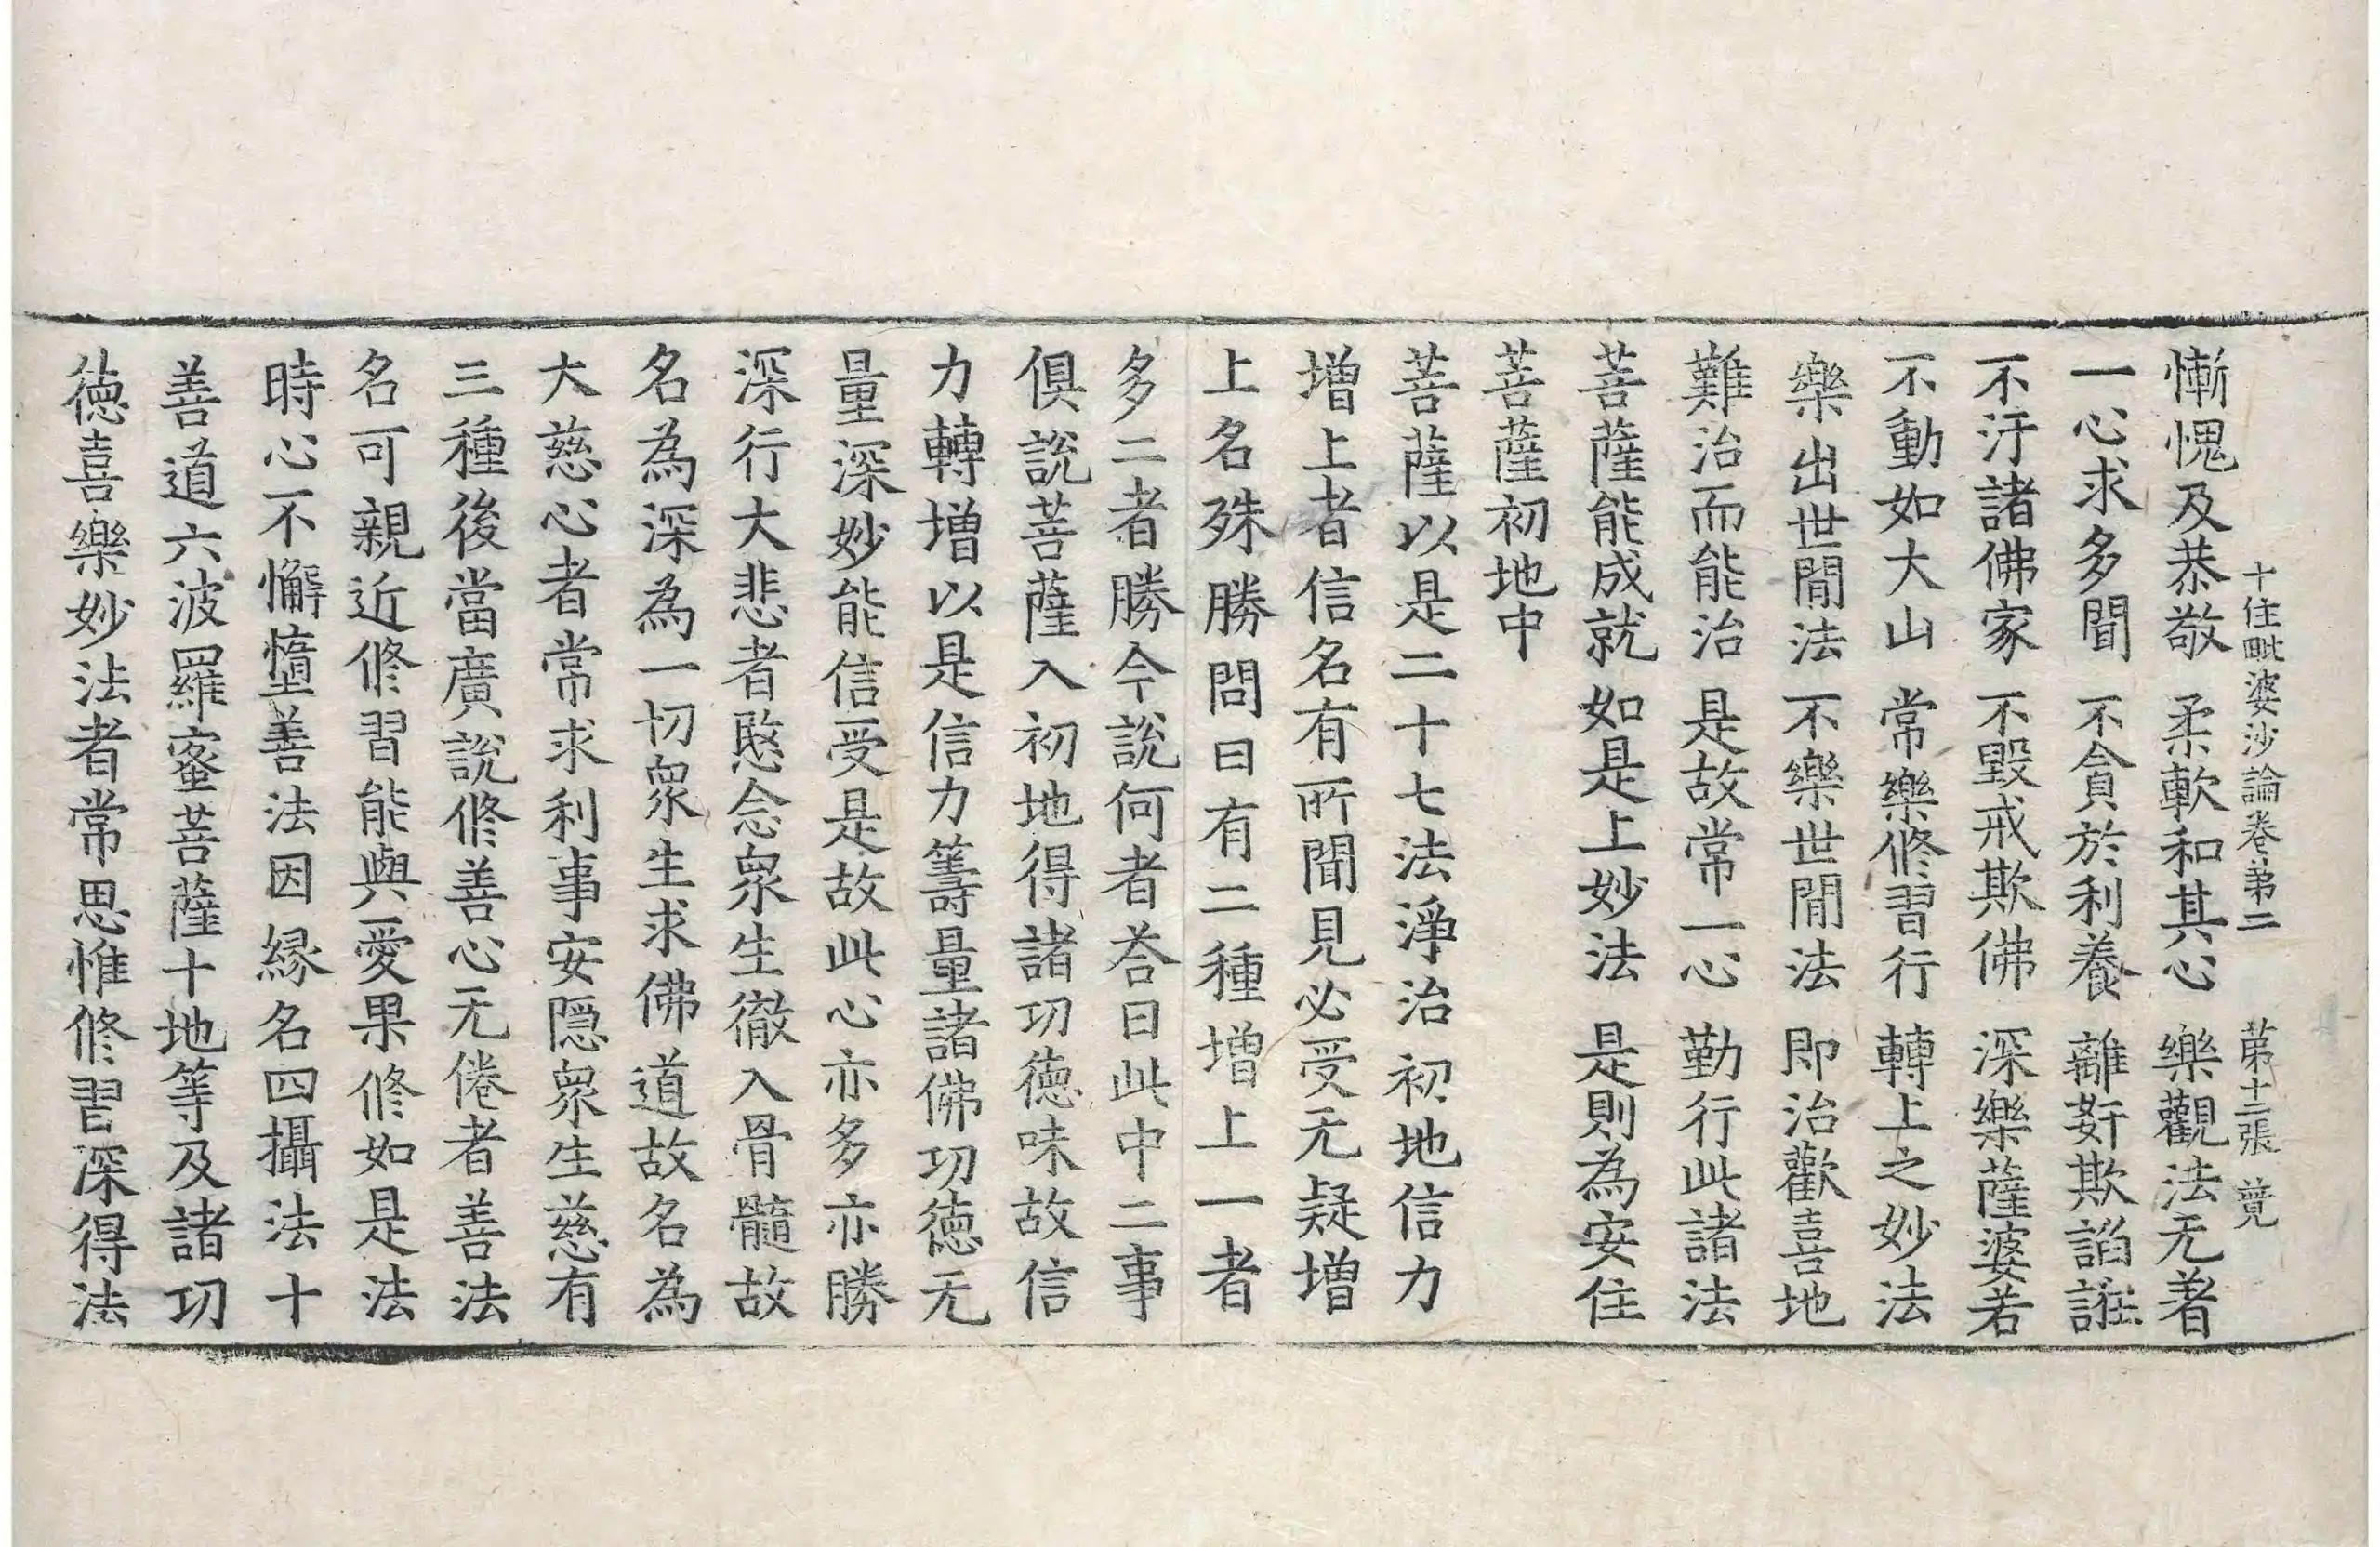 十住毗婆沙論卷第二　第十二張　㝵
慚愧及恭敬　柔軟和其心　樂觀法无著
一心求多聞　不貪於利養　離姧欺諂誑
不汙諸佛家　不毀戒欺佛　深樂薩婆若
不動如大山　常樂修習行　轉上之妙法
樂出世閒法　不樂世閒法　即治歡喜地
難治而能治　是故常一心　勤行此諸法
菩薩能成就　如是上妙法　是則為安住
菩薩初地中
菩薩以是二十七法淨治初地信力
增上者信名有所聞見必受无疑增
上名殊勝問曰有二種增上一者
多二者勝今說何者荅曰此中二事
俱說菩薩入初地得諸功德味故信
力轉增以是信力籌量諸佛功德无
量深妙能信受是故此心亦多亦勝
深行大悲者愍念眾生徹入骨髓故
名為深為一切眾生求佛道故名為
大慈心者常求利事安隱眾生慈有
三種後當廣說修善心无倦者善法
名可親近修習能與愛果修如是法
時心不懈墮善法因緣名四攝法十
善道六波羅蜜菩薩十地等及諸功
德喜樂妙法者常思惟修習深得法